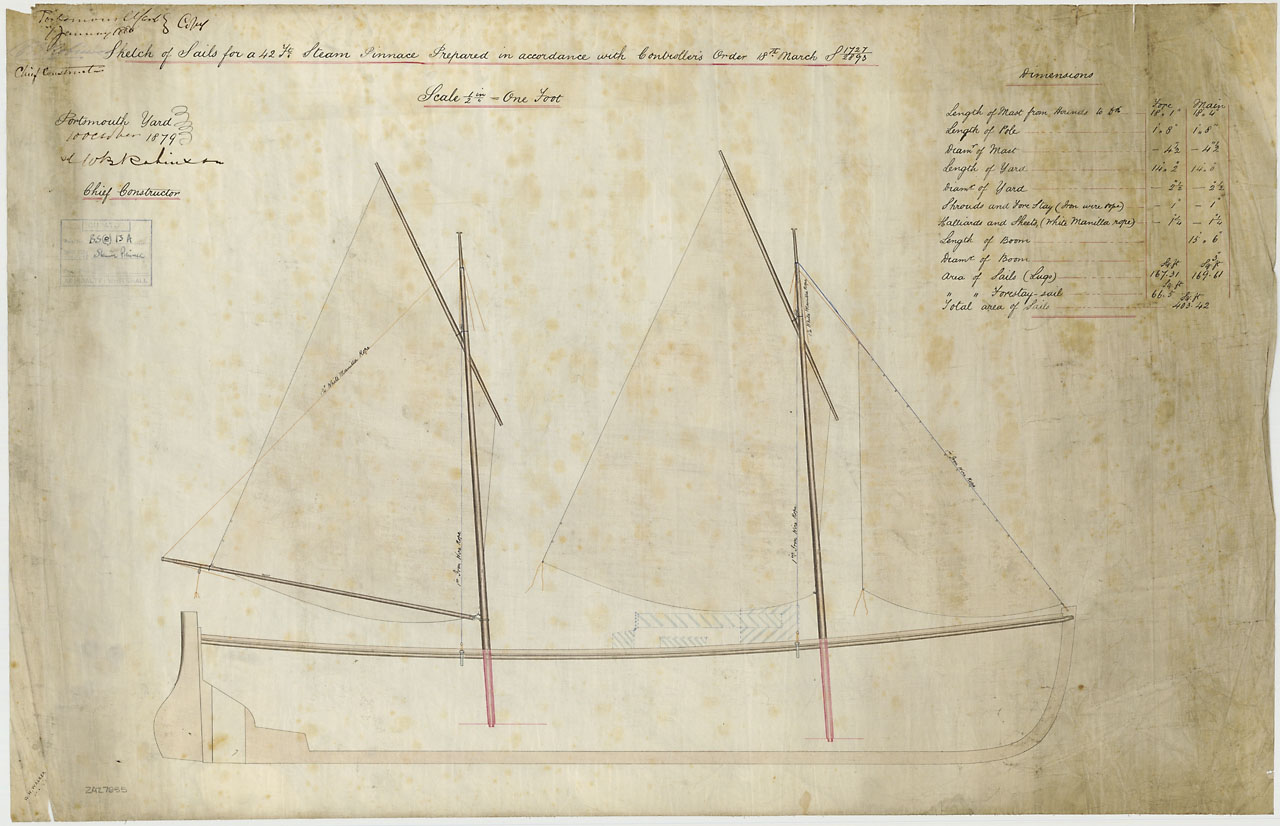 Portsmouth Yard } Copy
January 1880
Chief Constructor
Sketch of Sails for a 42 Ft Steam Pinnace Prepared in accordance with Controller's Order 18th March S 1727/2893
Scale ½ in = One Foot
Portsmouth Yard
10 October 1879
Chief Constructor
13 A
Dimensions
Fore Main
Length of Mast from Hounds to 18. 1" 18. 4"
Length of Pole 1. 8" 1. 8"
Deamr of Mast - 4½ - 4½
Length of Yard 14. 2 14.
Deamr of Yard - 2½ - 2½
Shrouds and Fore Stay (Iron wire rope) - 1" - 1"
Halliards and Sheets (White Manilla rope) - 1¼ - 1¼
Length of Boom 15. 6"
Deamr of Boom
Sq ft Sq ft
Area of Sails (Lugs) 167.31 169.61
Sq ft
" " Forestay-sail 66.5
Sq ft
Total area of Sails 403.42
White Manilla Rope
White Manilla Rope
Iron Wire Rope
1" Iron Wire Rope
1" Iron Wire Rope
ZAZ7855